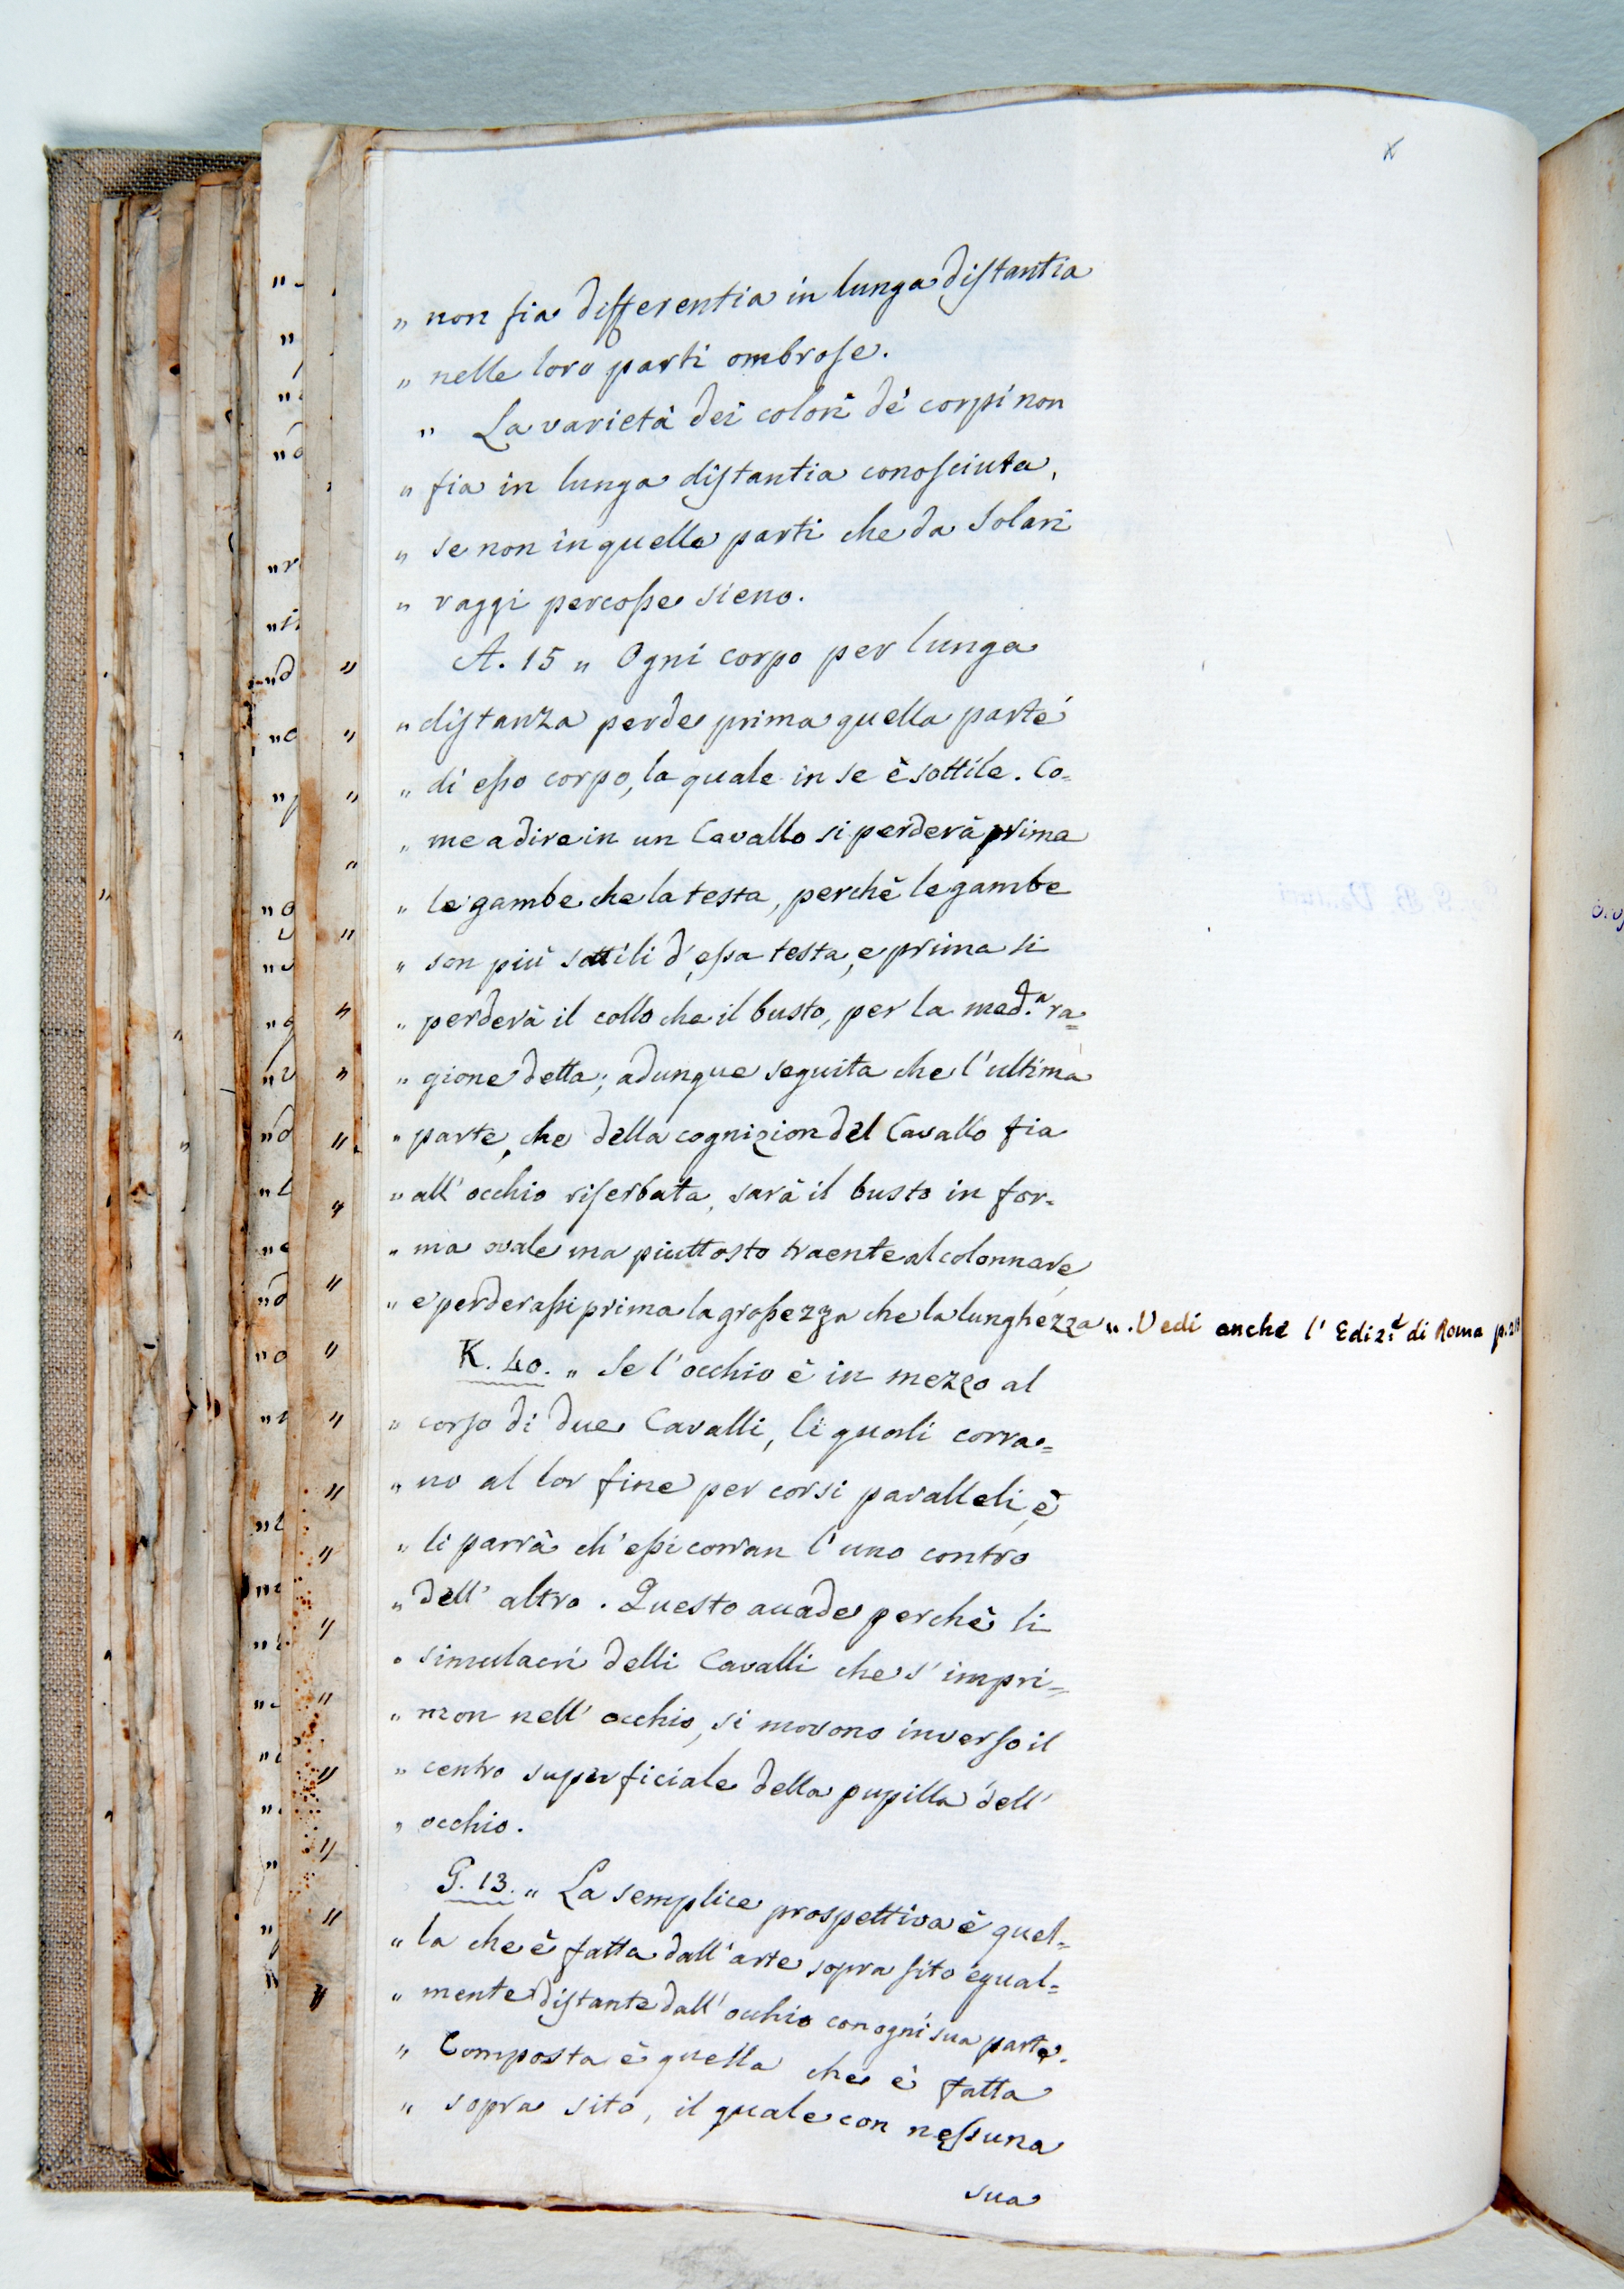 " non sia differentia in lunga distantia
" nelle loro parti ombrose.
" La varietà dei colori de' corpi non
" sia in lunga distantia conosciuta,
" se non in quelle parti che da Solari
" raggi percosse sieno.
A. 15 " Ogni corpo per lunga
" distanza perde prima quella parte
" di esso corpo, la quale in se è sottile. Co=
" me a dire in un Cavallo si perderà prima
" le gambe che la testa, perchè le gambe
" son più sottili d'essa testa, e prima si
" perderà il collo che il busto, per la med.ª ra=
" gione detta; adunque seguita che l'ultima
" parte, che della cognizion del Cavallo fia
" all'occhio riserbata, sarà il busto in for=
" ma ovale ma piuttosto traente al colonnare,
" e perderassi prima la grossezza che la lunghezza ". Vedi anche l' Ediz.e di Roma p.
K. 40. " Se l'occhio è in mezzo al
" corso di due Cavalli, li quali corra=
" no al lor fine per corsi paralleli, è
" li parrà ch'essi corran l'uno contro
" dell'altro. Questo accade perchè li
" simulacri delli Cavalli che s'impri=
" mon nell'occhio, si movono inverso il
" centro superficiale della pupilla dell'
" occhio.
G. 13. " La semplice prospettiva è quel=
" la che è fatta dall'arte sopra sito egual=
" mente distante dall'occhio con ogni sua parte.
" Composta è quella che è fatta
" sopra sito, il quale con nessuna
sua